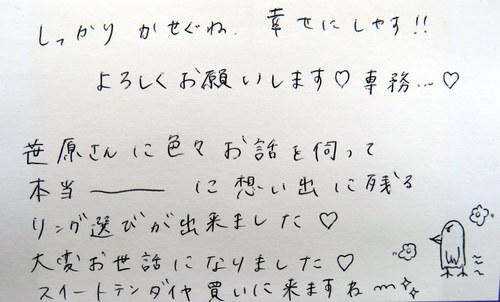 しっかり かせぐね. 幸せにしやす!!
よろしくお願いします♡ 専務…♡
笹原さんに色々お話を伺って
本当――に想い出に残る
リング選びが出来ました♡
大変お世話になりました♡
スイートテンダイヤ買いに来ますね m